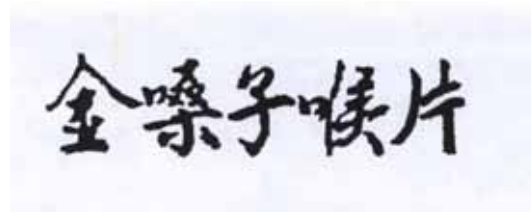 金嗓子喉片